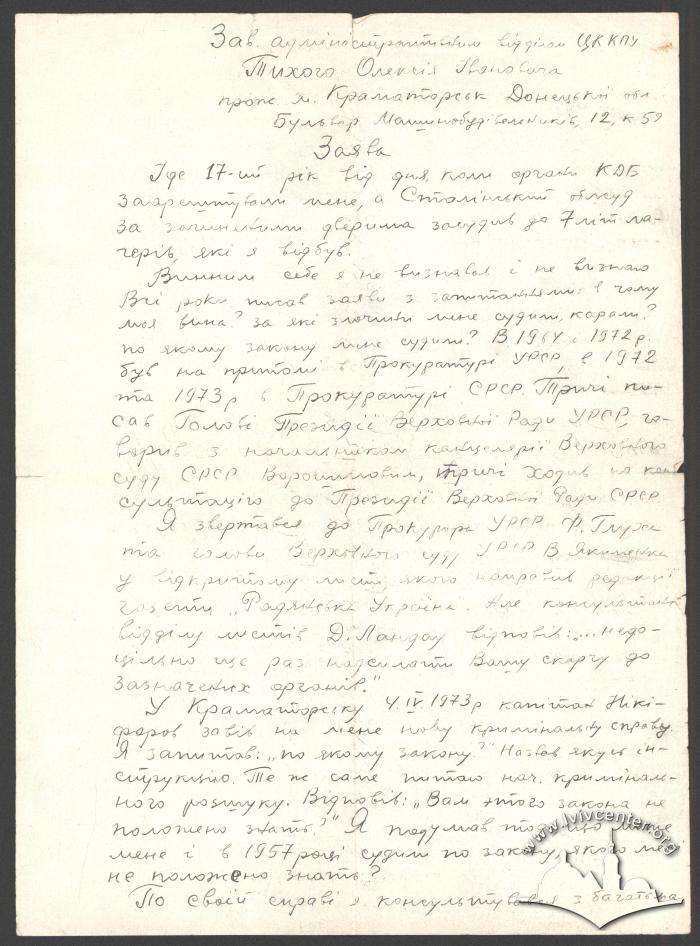 Зав. адміністративним відділом ЦК КПУ
Тихого Олексія Івановича
прож. м. Краматорськ Донецької обл.
Бульвар Машинобудівельників, 12, к 59
Заява
Іде 17-ий рік від дня, коли органи КДБ
заарештували мене, а Сталінський облсуд
за зачиненими дверима засудив до 7 літ ла-
герів, які я відбув.
Винним себе я не визнавав і не визнаю
Всі роки писав заяви з запитаннями: в чому
моя вина? за які злочини мене судили, карали?
по якому закону мене судили? В 1964 і 1972 р.
був на прийомі в Прокуратурі УРСР, в 1972
та 1973 р в Прокуратурі СРСР. Тричі пи-
сав Голові Президії Верховної Ради УРСР, го-
ворив з начальником канцелярії Верховного
суду СРСР Ворошиловим, тричі ходив на кон-
сультацію до Президії Верховної Ради СРСР
Я звертався до Прокурора УРСР Ф. Глуха
та голови Верховного суду УРСР В. Якименка
у відкритому листі, якого направив редакції
газети „Радянська Україна". Але консультант
відділу листів Д. Ландау відповів: „...недо-
цільно ще раз надсилати Вашу скаргу до
зазначених органів."
У Краматорську 4.IV.1973 р капітан Нікі-
форов завів на мене нову кримінальну справу.
Я запитав: „по якому закону?" Назвав якусь ін-
струкцію. Те ж саме питаю нач. криміналь-
ного розшуку. Відповів: „Вам этого закона не
положено знать." Я подумав тоді, що може
мене і в 1957 році судили по закону, якого мені
не положено знать?
По своїй справі я консультувався з багатьма
www.lvivcenter.org